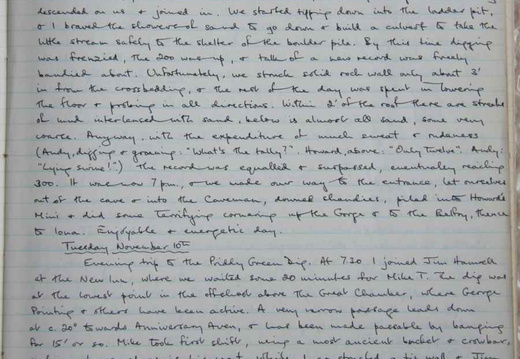 descended on us & joined in. We started tipping down into the ladder pit,
& I braved the showers of sand to go down & build a culvert to take the
little stream safely to the shelter of the boulder pile. By this time digging
was frenzied, the 200 was up, & talk of a new record was freely
bandied about. Unfortunately, we struck solid rock wall only about 3'
in from the crossbedding, & the rest of the day was spent in lowering
the floor & probing in all directions. Within 2' of the roof there are streaks
of mud interlaced with sand, below is almost all sand, some very
coarse. Anyway, with the expenditure of much sweat & rudeness
(Andy, digging & groaning: "What's the tally?". Howard, above: "Only twelve". Andy:
"Lying swine!") the record was equalled & surpassed, eventually reaching
300. It was now 7pm, & we made our way to the entrance, let ourselves
out of the cave & into the Caveman, downed shandies, piled into Howard's
Mini & did some terrifying cornering up the Gorge & to the Belfry, thence
to Iona. Enjoyable & energetic day.
Tuesday November 10th
Evening trip to the Giddy Green Dig. At 7.30 I joined Jim Hanwell
at the New Inn, where we waited some 20 minutes for Mike T. The dig was
at the lowest point in the offshoot above the Great Chamber, where George
Pointing & others have been active. A very narrow passage leads down
at c. 20° towards Anniversary Aven, & has been made passable by banging
for 15' or so. Mike took first shift, using a most ancient bucket & crowbar,